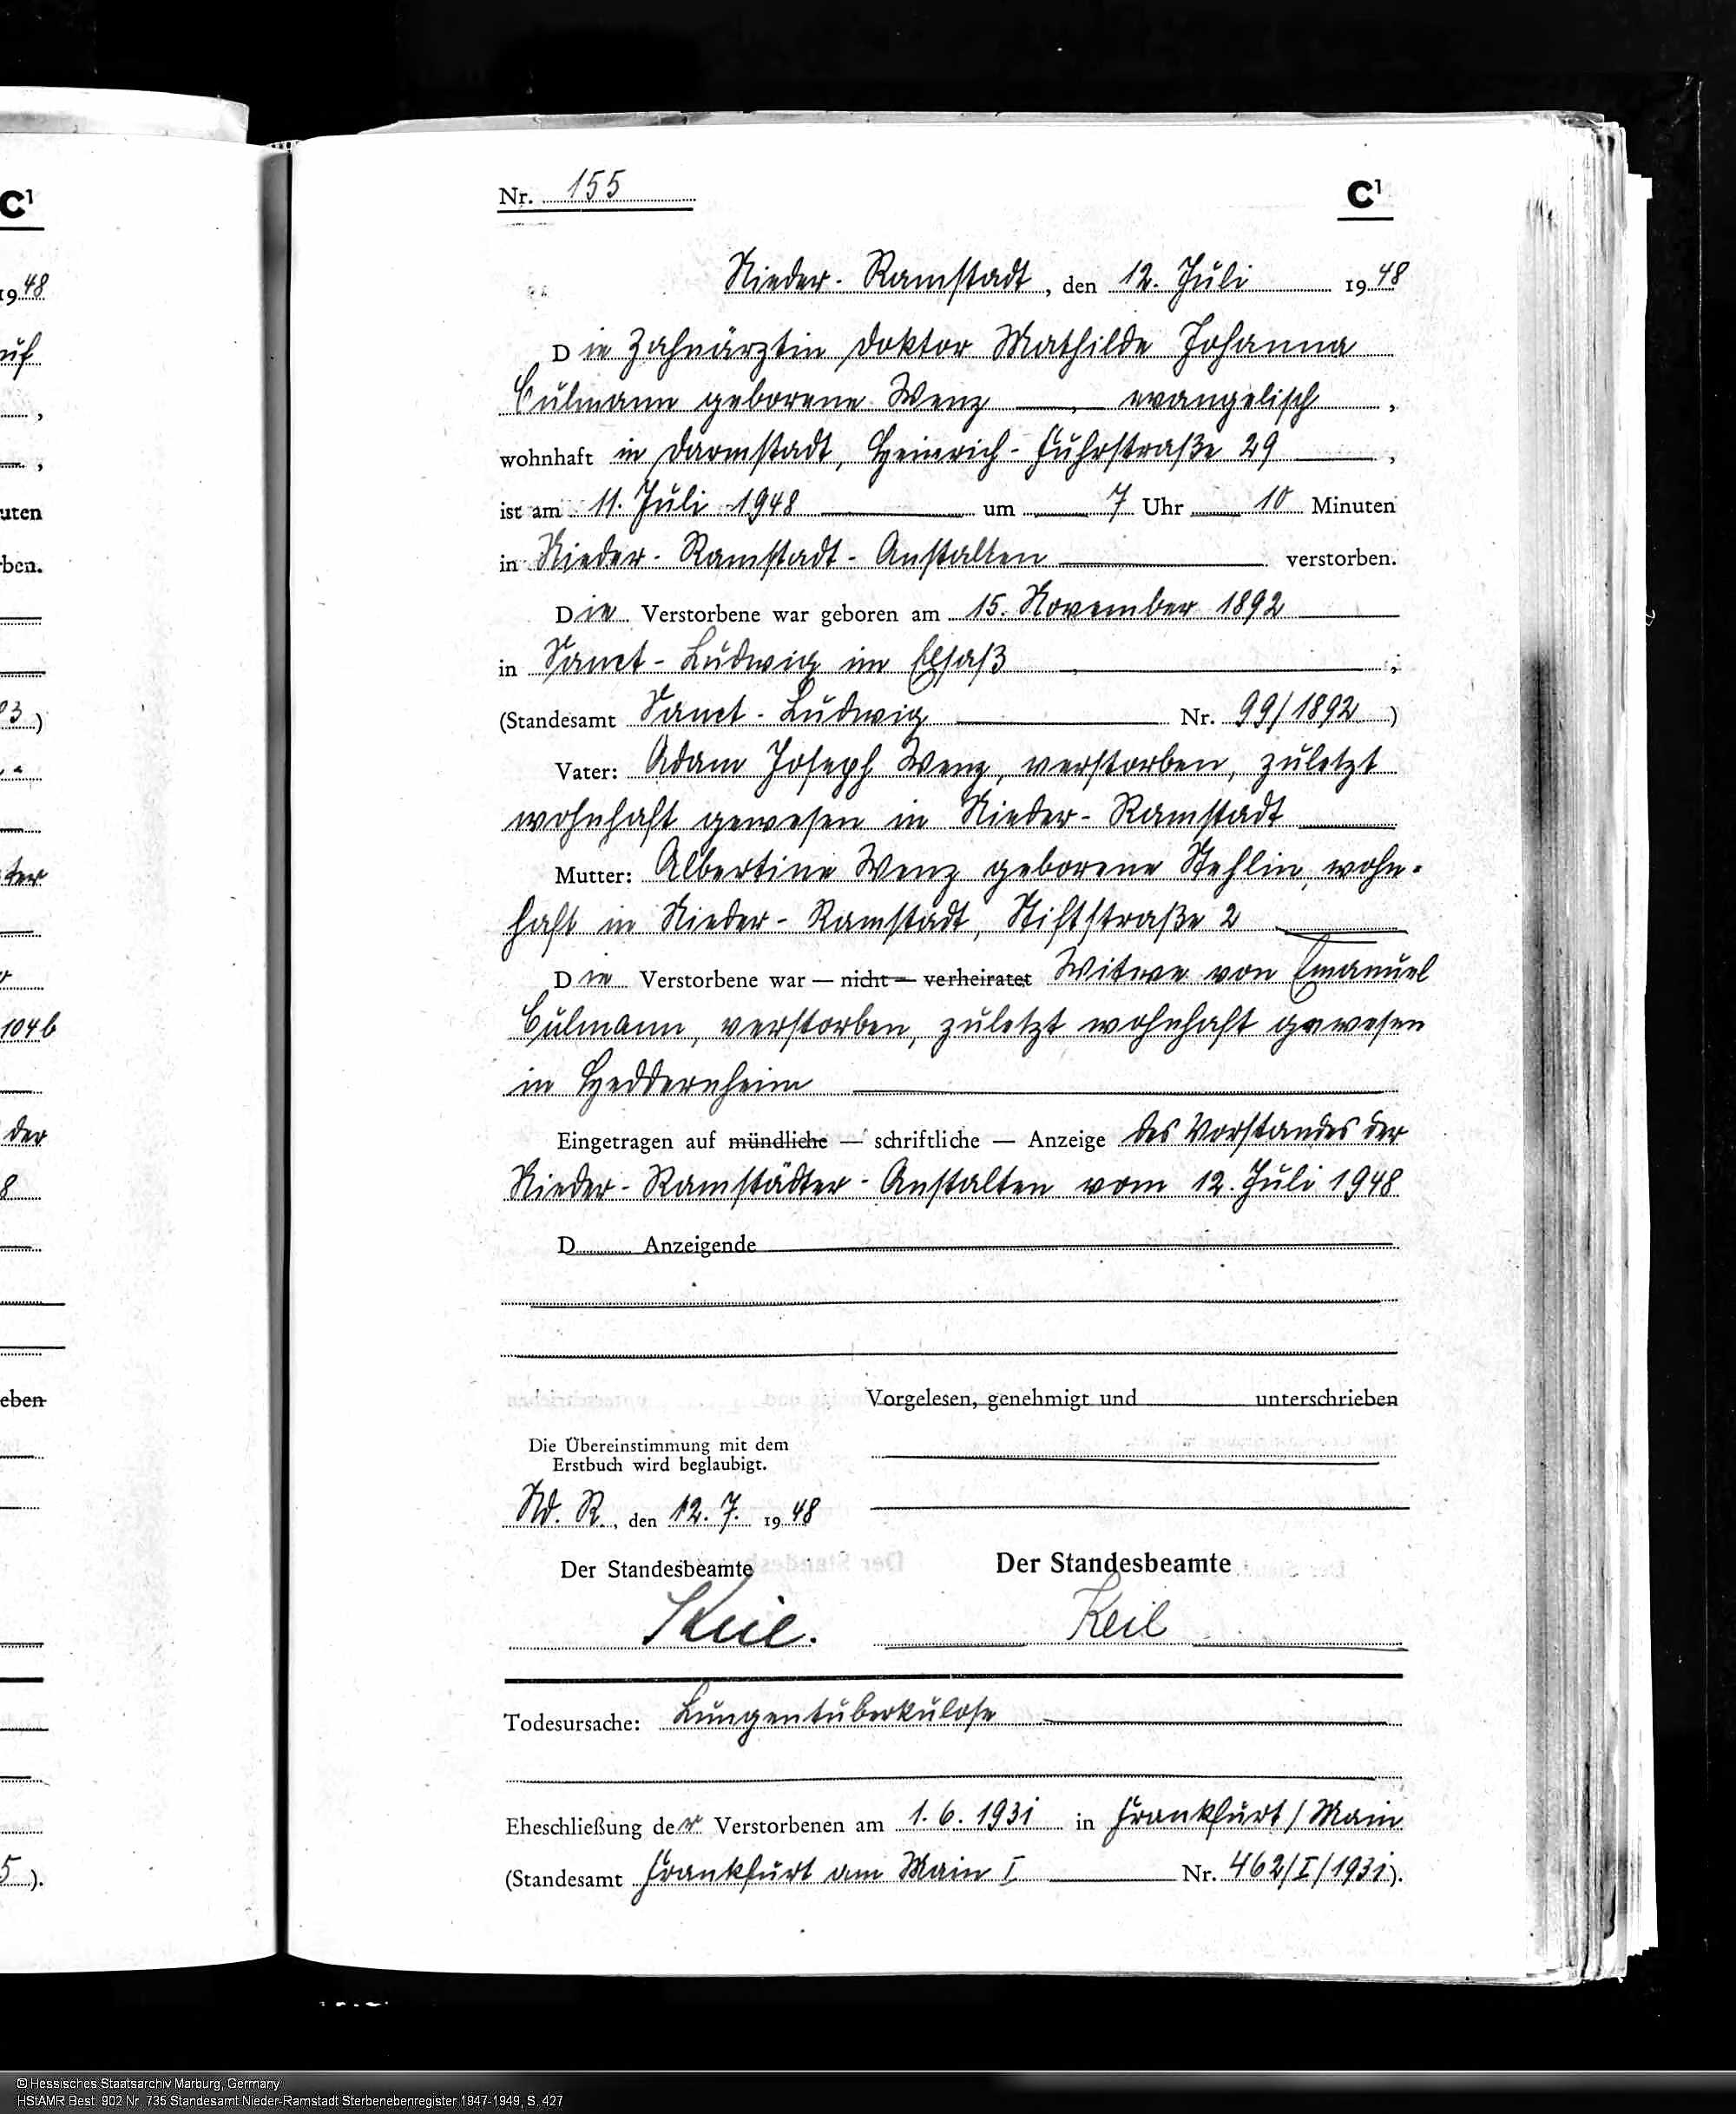 C¹
1948
uf
,
,
uten
ben.
03)
ter
1046
der
8
eben
5).
Nr. 155
C¹
Nieder-Ramstadt, den 12. Juli 1948
Die Zahnärztin Doktor Mathilde Johanna
Culmann geborene Wenz —, evangelisch,
wohnhaft in Darmstadt, Heinrich-Fuhrstraße 29 —,
ist am 11. Juli 1948 — um — 7 Uhr — 10 Minuten
in Nieder-Ramstadt-Anstalten — verstorben.
Die Verstorbene war geboren am 15. November 1892 —
in Sanct-Ludwig im Elsaß —;
(Standesamt Sanct-Ludwig — Nr. 99/1892)
Vater: Adam Joseph Wenz, verstorben, zuletzt
wohnhaft gewesen in Nieder-Ramstadt —
Mutter: Albertine Wenz geborene Stehlin, wohn-
haft in Nieder-Ramstadt, Stiftstraße 2 —
Die Verstorbene war — nicht — verheiratet Witwe von Emanuel
Culmann, verstorben, zuletzt wohnhaft gewesen
in Heddernheim —
Eingetragen auf mündliche — schriftliche — Anzeige des Vorstandes der
Nieder-Ramstädter-Anstalten vom 12. Juli 1948
D Anzeigende
Vorgelesen, genehmigt und unterschrieben
Die Übereinstimmung mit dem
Erstbuch wird beglaubigt.
Nd. R., den 12. 7. 1948
Der Standesbeamte
Keil.
Der Standesbeamte
Keil
Todesursache: Lungentuberkulose —
Eheschließung der Verstorbenen am 1. 6. 1931 in Frankfurt/Main
(Standesamt Frankfurt am Main I — Nr. 462/I/1931).
© Hessisches Staatsarchiv Marburg, Germany
HStAMR Best. 902 Nr. 735 Standesamt Nieder-Ramstadt Sterbenebenregister 1947-1949, S. 427